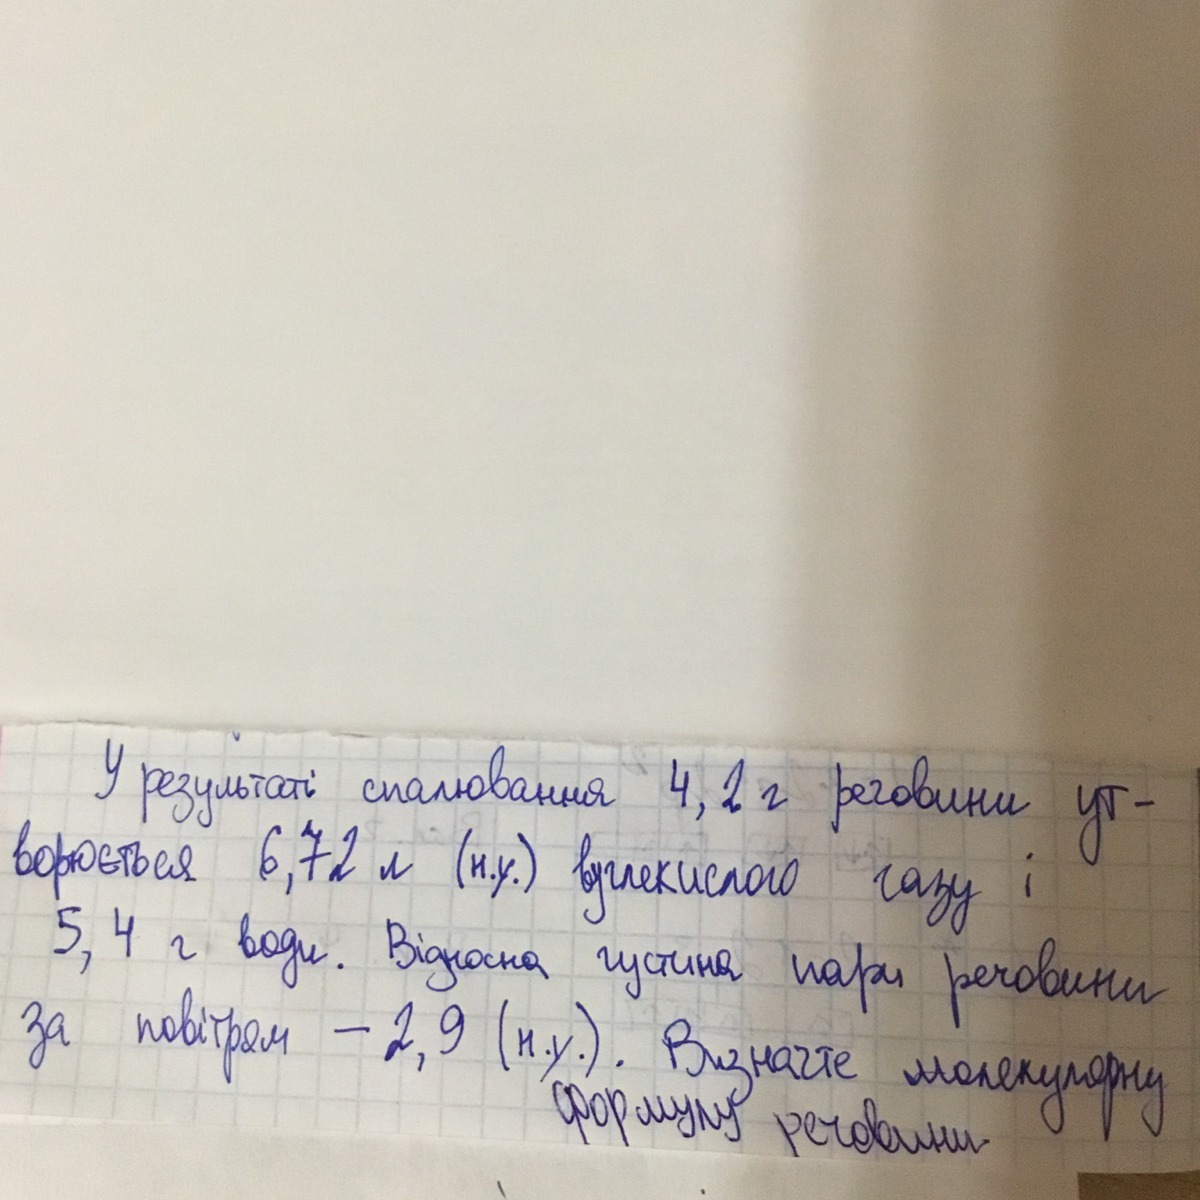 У результаті спалювання 4,2 г речовини ут-
ворюється 6,72 л (н.у.) вуглекислого газу і
5,4 г води. Відносна густина пари речовини
за повітрям – 2,9 (н.у.). Визначте молекулярну
формулу речовини